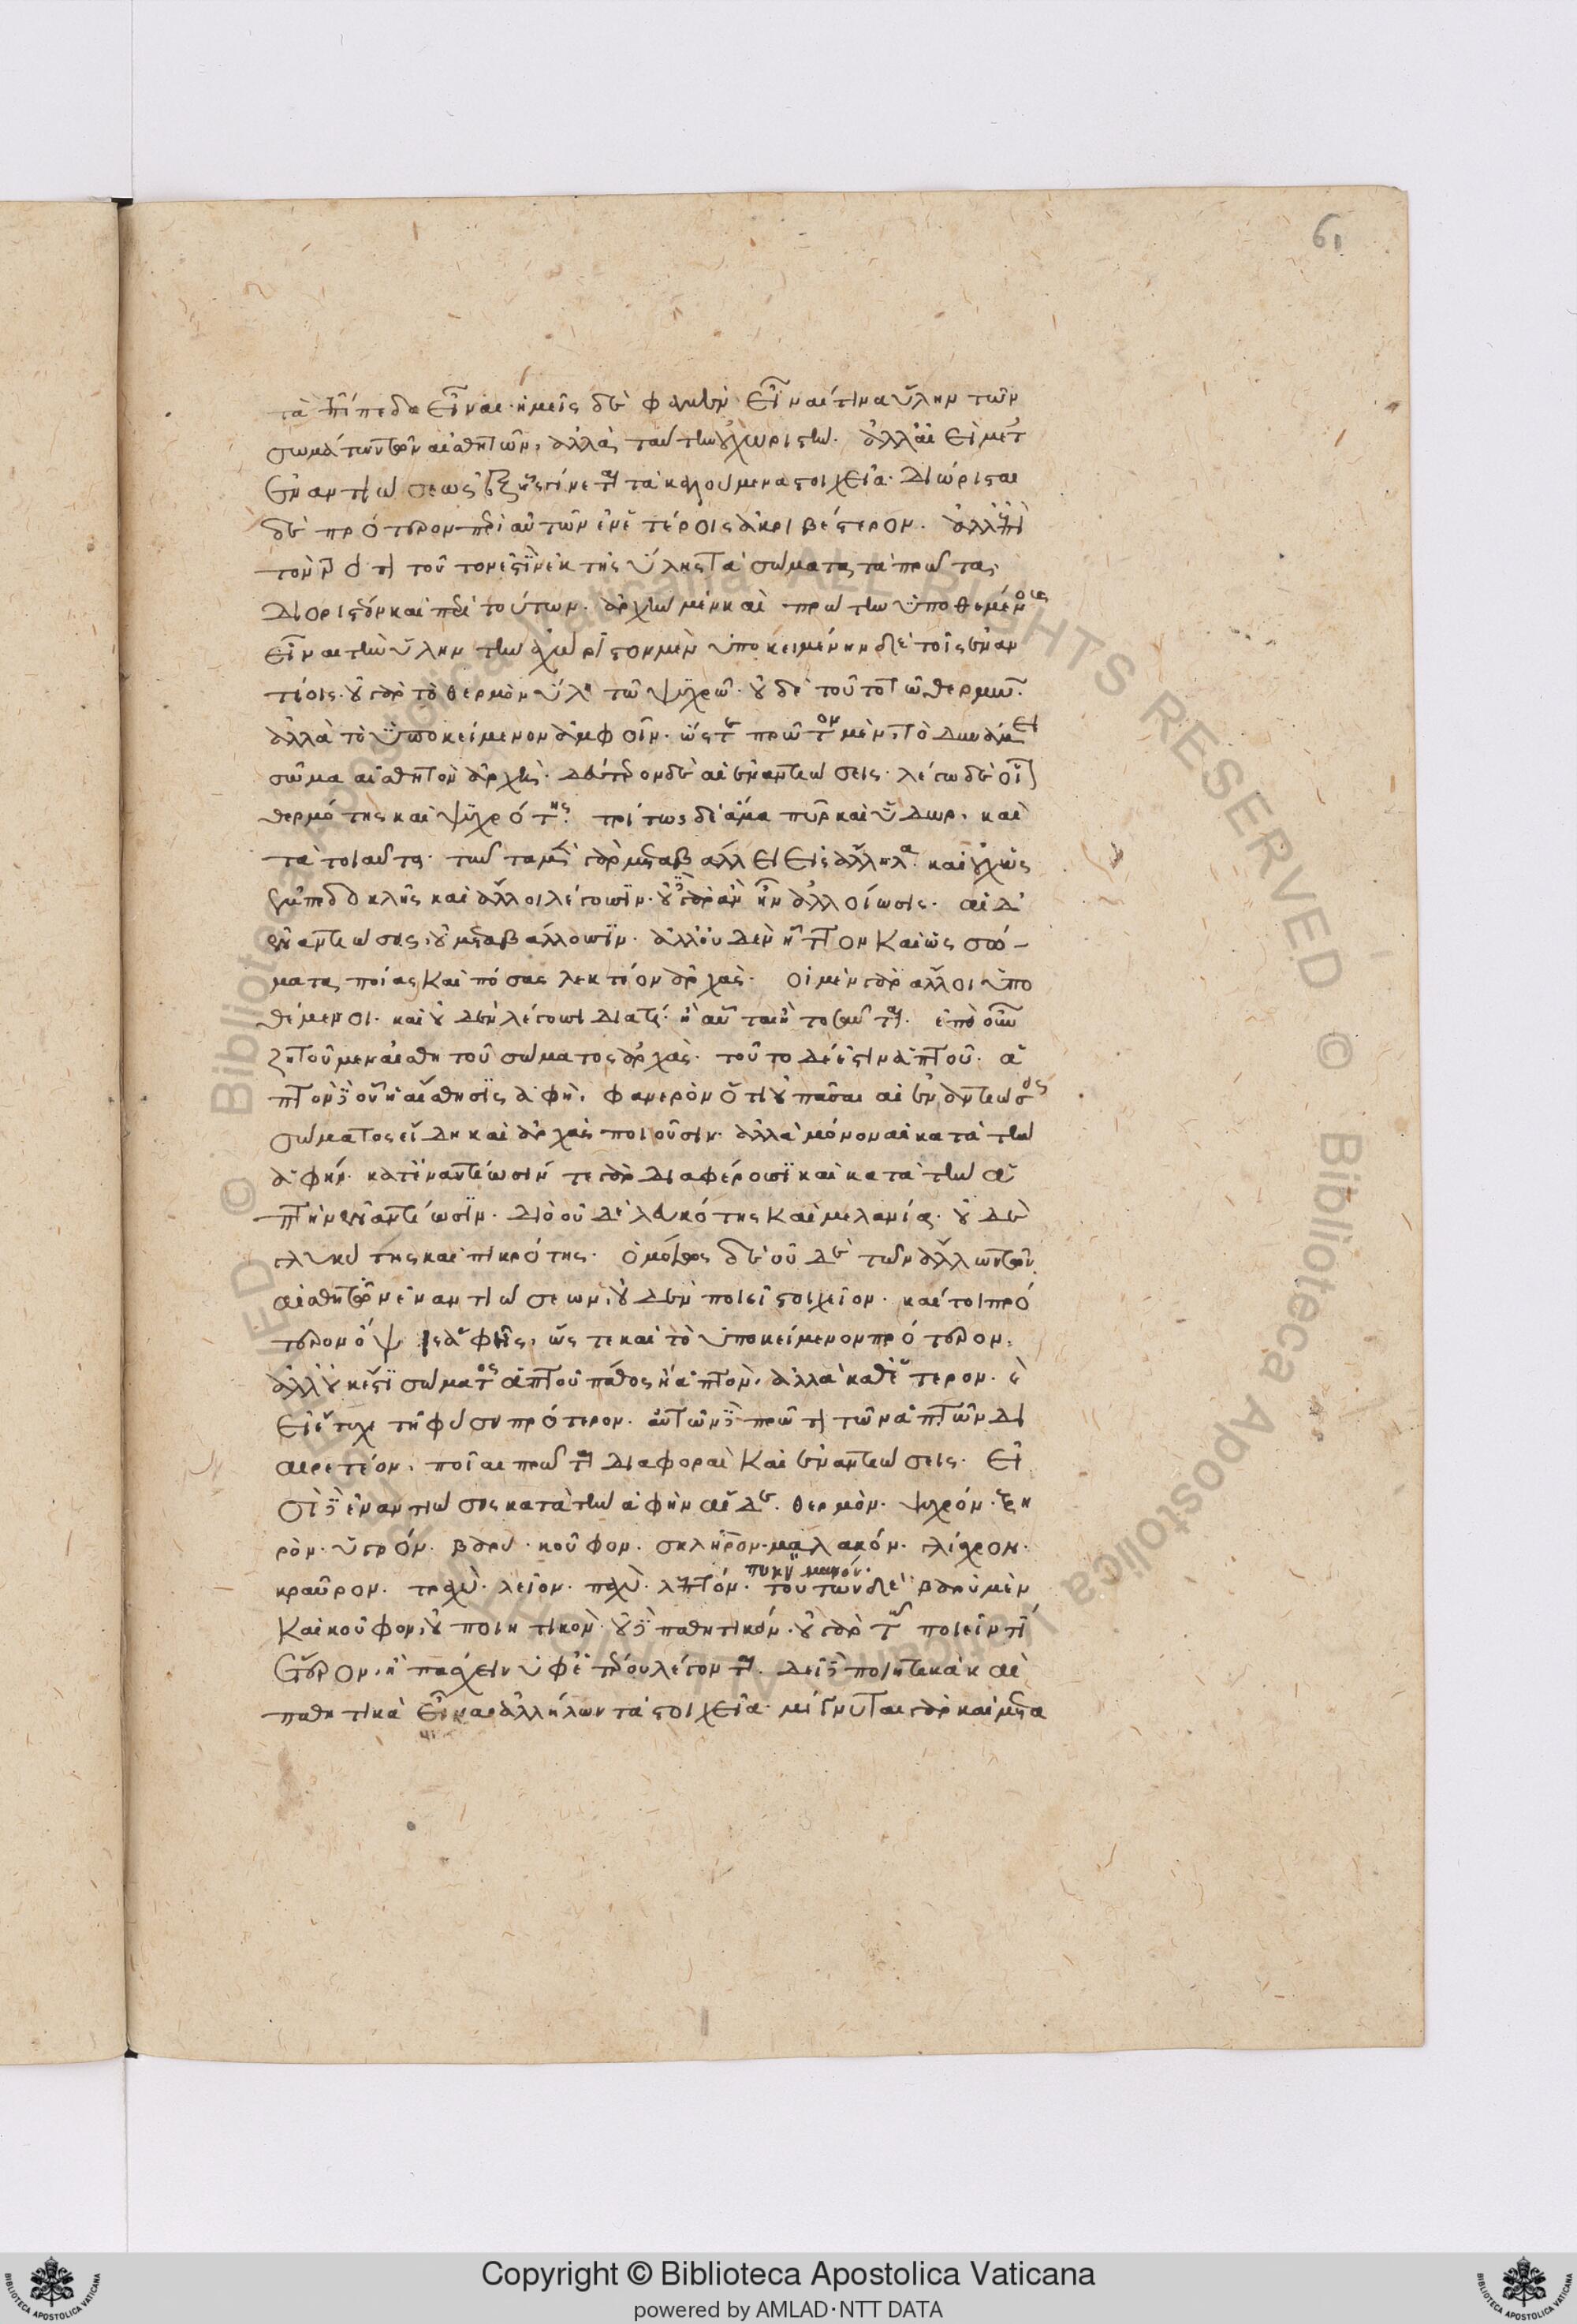 61
τὰ ἐπίπεδα εἶναι· ἡμεῖς δὲ φαμὲν εἶναί τινα ὕλην τῶν
σωμάτων τῶν αἰσθητῶν, ἀλλὰ ταύτην οὐ χωριστήν· ἀλλ' ἀεὶ μετ'
ἐναντιώσεως ἐξ ἧς γίνεται τὰ καλούμενα στοιχεῖα· διώρισται
δὲ πρότερον περὶ αὐτῶν ἐν ἑτέροις ἀκριβέστερον. ἀλλ' ἐπεὶ
τὸν τρόπον τοῦτον ἐστὶν ἐκ τῆς ὕλης τὰ σώματα τὰ πρῶτα,
διοριστέον καὶ περὶ τούτων. ἀρχὴν μὲν καὶ πρώτην ὑποθεμένοις
εἶναι τὴν ὕλην τὴν ἀχώριστον μὲν ὑποκειμένην δὲ τοῖς ἐναν
τίοις· οὐ γὰρ τὸ θερμὸν ὕλη τῷ ψυχρῷ· οὐδὲ τοῦτο τῷ θερμῷ·
ἀλλὰ τὸ ὑποκείμενον ἀμφοῖν· ὥστε πρῶτον μὲν, τὸ δυνάμει
σῶμα αἰσθητὸν ἀρχή· δεύτερον δὲ αἱ ἐναντιώσεις· λέγω δὲ οἷον
θερμότης καὶ ψυχρότης· τρίτως δὲ ἅμα πῦρ καὶ ὕδωρ, καὶ
τὰ τοιαῦτα· ταῦτα μὲν γὰρ μεταβάλλει εἰς ἄλληλα καὶ οὐχ ὡς
ἐμπεδοκλῆς καὶ ἄλλοι λέγουσιν· οὐδὲ γὰρ ἂν ἦν ἀλλοίωσις· αἱ δ'
ἐναντιώσεις, οὐ μεταβάλλουσιν· ἀλλ' οὐδὲν ἧττον καὶ ὡς σώ-
ματος ποίας καὶ πόσας λεκτέον ἀρχάς· οἱ μὲν γὰρ ἄλλοι ὑπο
θέμενοι· καὶ οὐδὲν λέγουσι διατί· ἢ αὗται ἢ τοσαῦται. ἐπεὶ οὖν
ζητοῦμεν αἰσθητοῦ σώματος ἀρχάς· τοῦτο δέ ἐστιν ἁπτοῦ· ἁ
πτὸν δὲ οὗ ἡ αἴσθησις ἁφή, φανερὸν ὅτι οὐ πᾶσαι αἱ ἐναντιώσεις
σώματος εἴδη καὶ ἀρχὰς ποιοῦσιν· ἀλλὰ μόνον αἱ κατὰ τὴν
ἁφήν· κατ' ἐναντίωσίν τε γὰρ διαφέρουσι καὶ κατὰ τὴν ἁ
πτὴν ἐναντίωσιν· διὸ οὐδὲ λευκότης καὶ μελανία· οὐδὲ
γλυκύτης καὶ πικρότης· ὁμοίως δὲ οὐδὲ τῶν ἄλλων τῶν
αἰσθητῶν ἐναντιώσεων, οὐδὲν ποιεῖ στοιχεῖον· καίτοι πρό
τερον ὄψις ἁφῆς, ὥστε καὶ τὸ ὑποκείμενον πρότερον,
ἀλλ' οὐκ ἔστι σώματος ἁπτοῦ πάθος ᾗ ἁπτὸν, ἀλλὰ καθ' ἕτερον· καὶ
εἰ ἔτυχε τῇ φύσει πρότερον. αὐτῶν δὲ πρῶτον τῶν ἁπτῶν δι
αιρετέον, ποῖαι πρῶται διαφοραὶ καὶ ἐναντιώσεις· εἰ
σὶ δὲ ἐναντιώσεις κατὰ τὴν ἁφὴν αἵδε· θερμόν· ψυχρόν· ξη
ρόν· ὑγρόν· βαρύ· κοῦφον· σκληρόν· μαλακόν· γλίσχρον·
κραῦρον· τραχύ· λεῖον· παχύ· λεπτόν· πυκνὸν μανόν· τούτων δὲ βαρὺ μὲν
καὶ κοῦφον, οὐ ποιητικὸν οὐδὲ παθητικόν· οὐ γὰρ τῷ ποιεῖν τι
ἕτερον, ἢ πάσχειν ὑφ' ἑτέρου λέγονται. δεῖ δὲ ποιητικὰ καὶ
παθητικὰ εἶναι ἀλλήλων τὰ στοιχεῖα· μίγνυται γὰρ καὶ μετα
Copyright © Biblioteca Apostolica Vaticana
powered by AMLAD·NTT DATA